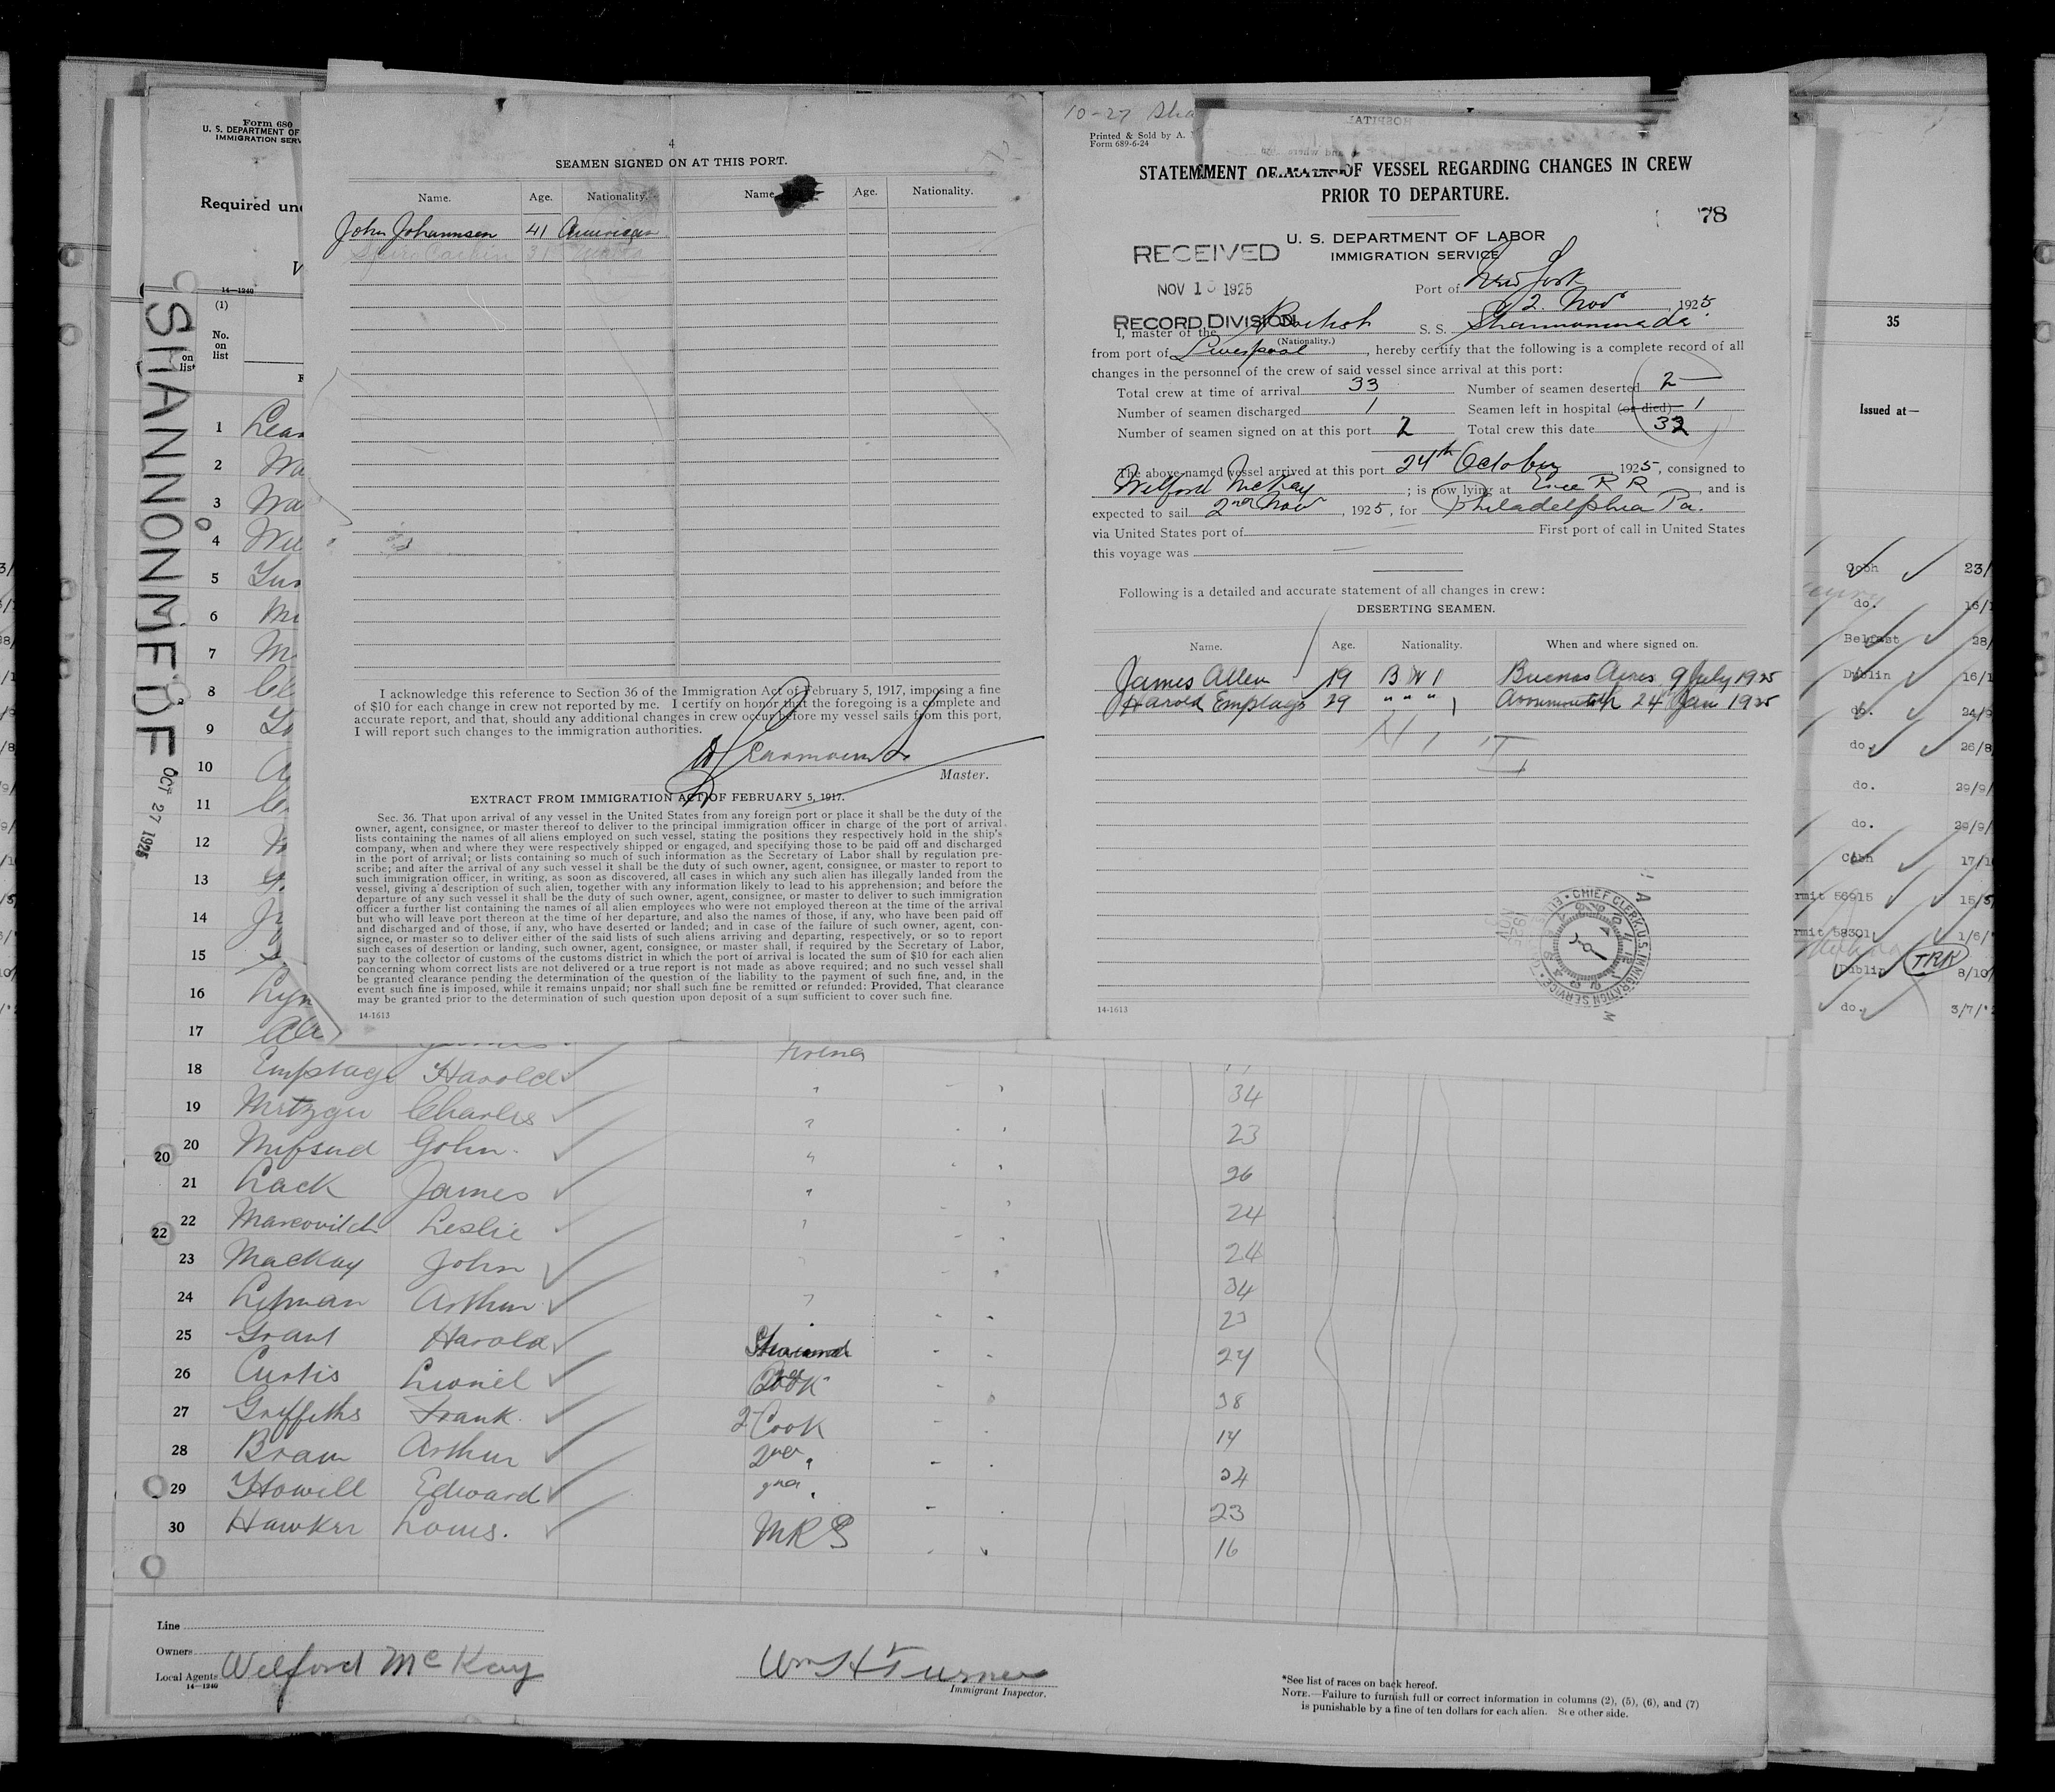 4
SEAMEN SIGNED ON AT THIS PORT.
Name. Age. Nationality. Name Age. Nationality.
John Johannsen 41 American
I acknowledge this reference to Section 36 of the Immigration Act of February 5, 1917, imposing a fine
of $10 for each change in crew not reported by me. I certify on honor that the foregoing is a complete and
accurate report, and that, should any additional changes in crew occur before my vessel sails from this port,
I will report such changes to the immigration authorities.
Master.
EXTRACT FROM IMMIGRATION ACT OF FEBRUARY 5, 1917.
Sec. 36. That upon arrival of any vessel in the United States from any foreign port or place it shall be the duty of the
owner, agent, consignee, or master thereof to deliver to the principal immigration officer in charge of the port of arrival
lists containing the names of all aliens employed on such vessel, stating the positions they respectively hold in the ship's
company, when and where they were respectively shipped or engaged, and specifying those to be paid off and discharged
in the port of arrival; or lists containing so much of such information as the Secretary of Labor shall by regulation pre-
scribe; and after the arrival of any such vessel it shall be the duty of such owner, agent, consignee, or master to report to
such immigration officer, in writing, as soon as discovered, all cases in which any such alien has illegally landed from the
vessel, giving a description of such alien, together with any information likely to lead to his apprehension; and before the
departure of any such vessel it shall be the duty of such owner, agent, consignee, or master to deliver to such immigration
officer a further list containing the names of all alien employees who were not employed thereon at the time of the arrival
but who will leave port thereon at the time of her departure, and also the names of those, if any, who have been paid off
and discharged and of those, if any, who have deserted or landed; and in case of the failure of such owner, agent, con-
signee, or master so to deliver either of the said lists of such aliens arriving and departing, respectively, or so to report
such cases of desertion or landing, such owner, agent, consignee, or master shall, if required by the Secretary of Labor,
pay to the collector of customs of the customs district in which the port of arrival is located the sum of $10 for each alien
concerning whom correct lists are not delivered or a true report is not made as above required; and no such vessel shall
be granted clearance pending the determination of the question of the liability to the payment of such fine, and, in the
event such fine is imposed, while it remains unpaid; nor shall such fine be remitted or refunded: Provided, That clearance
may be granted prior to the determination of such question upon deposit of a sum sufficient to cover such fine.
14-1613
10-27 Sha
Printed & Sold by A.
Form 689-6-24
STATEMENT OF MASTER OF VESSEL REGARDING CHANGES IN CREW
PRIOR TO DEPARTURE.
78
U. S. DEPARTMENT OF LABOR
IMMIGRATION SERVICE
RECEIVED
NOV 1 1925
RECORD DIVISION
Port of New York
2. Nov 1925
I, master of the British S. S. Shannonmede
(Nationality.)
from port of Liverpool, hereby certify that the following is a complete record of all
changes in the personnel of the crew of said vessel since arrival at this port:
Total crew at time of arrival 33 Number of seamen deserted 2
Number of seamen discharged 1 Seamen left in hospital (or died) 1
Number of seamen signed on at this port 2 Total crew this date 32
The above-named vessel arrived at this port 24th October 1925, consigned to
Welford McKay; is now lying at Erie R R, and is
expected to sail 2nd Nov, 1925, for Philadelphia Pa.
via United States port of First port of call in United States
this voyage was
Following is a detailed and accurate statement of all changes in crew:
DESERTING SEAMEN.
Name. Age. Nationality. When and where signed on.
James Allen 19 B W I Buenos Aires 9 July 1925
Harold Emptage 29 " " " Avonmouth 24 Jan 1925
CHIEF CLERK U.S. IMMIGRATION SERVICE
14-1613
Form 680
U. S. DEPARTMENT OF
IMMIGRATION SERV
Required und
14-1240
(1)
No.
on
list
SHANNONMEDE
OCT 27 1925
1 Lea
2 Wa
3 Wa
4
5
6
7
8
9
10
11
12
13
14
15
16 Lyn
17
18 Emptage Harold
19 Metzger Charles 34
20 20 Mifsud John 23
21 Lack James 26
22 22 Marcovitch Leslie 24
23 MacKay John 24
24 Lipman Arthur 34
25 Grant Harold 23
26 Curtis Lionel Cook
27 Griffiths Frank 2 Cook 38
28 Arthur
29 Howell Edward
30 Hawker Louis. MRS 23
16
Line
Owners
Local Agents Welford McKay
14-1240
Wm H Turner
Immigrant Inspector.
*See list of races on back hereof.
NOTE.—Failure to furnish full or correct information in columns (2), (5), (6), and (7)
is punishable by a fine of ten dollars for each alien. See other side.
35
Issued at—
Cobh 23/
do. 16/1
Belfast 28/
Dublin 16/1
do. 24/9
do. 26/8
do. 29/9/
do. 29/9/
Cobh 17/1
rmit 56915 15/5
rmit 58301 1/6/
Dublin TRK 8/10/
do. 3/7/